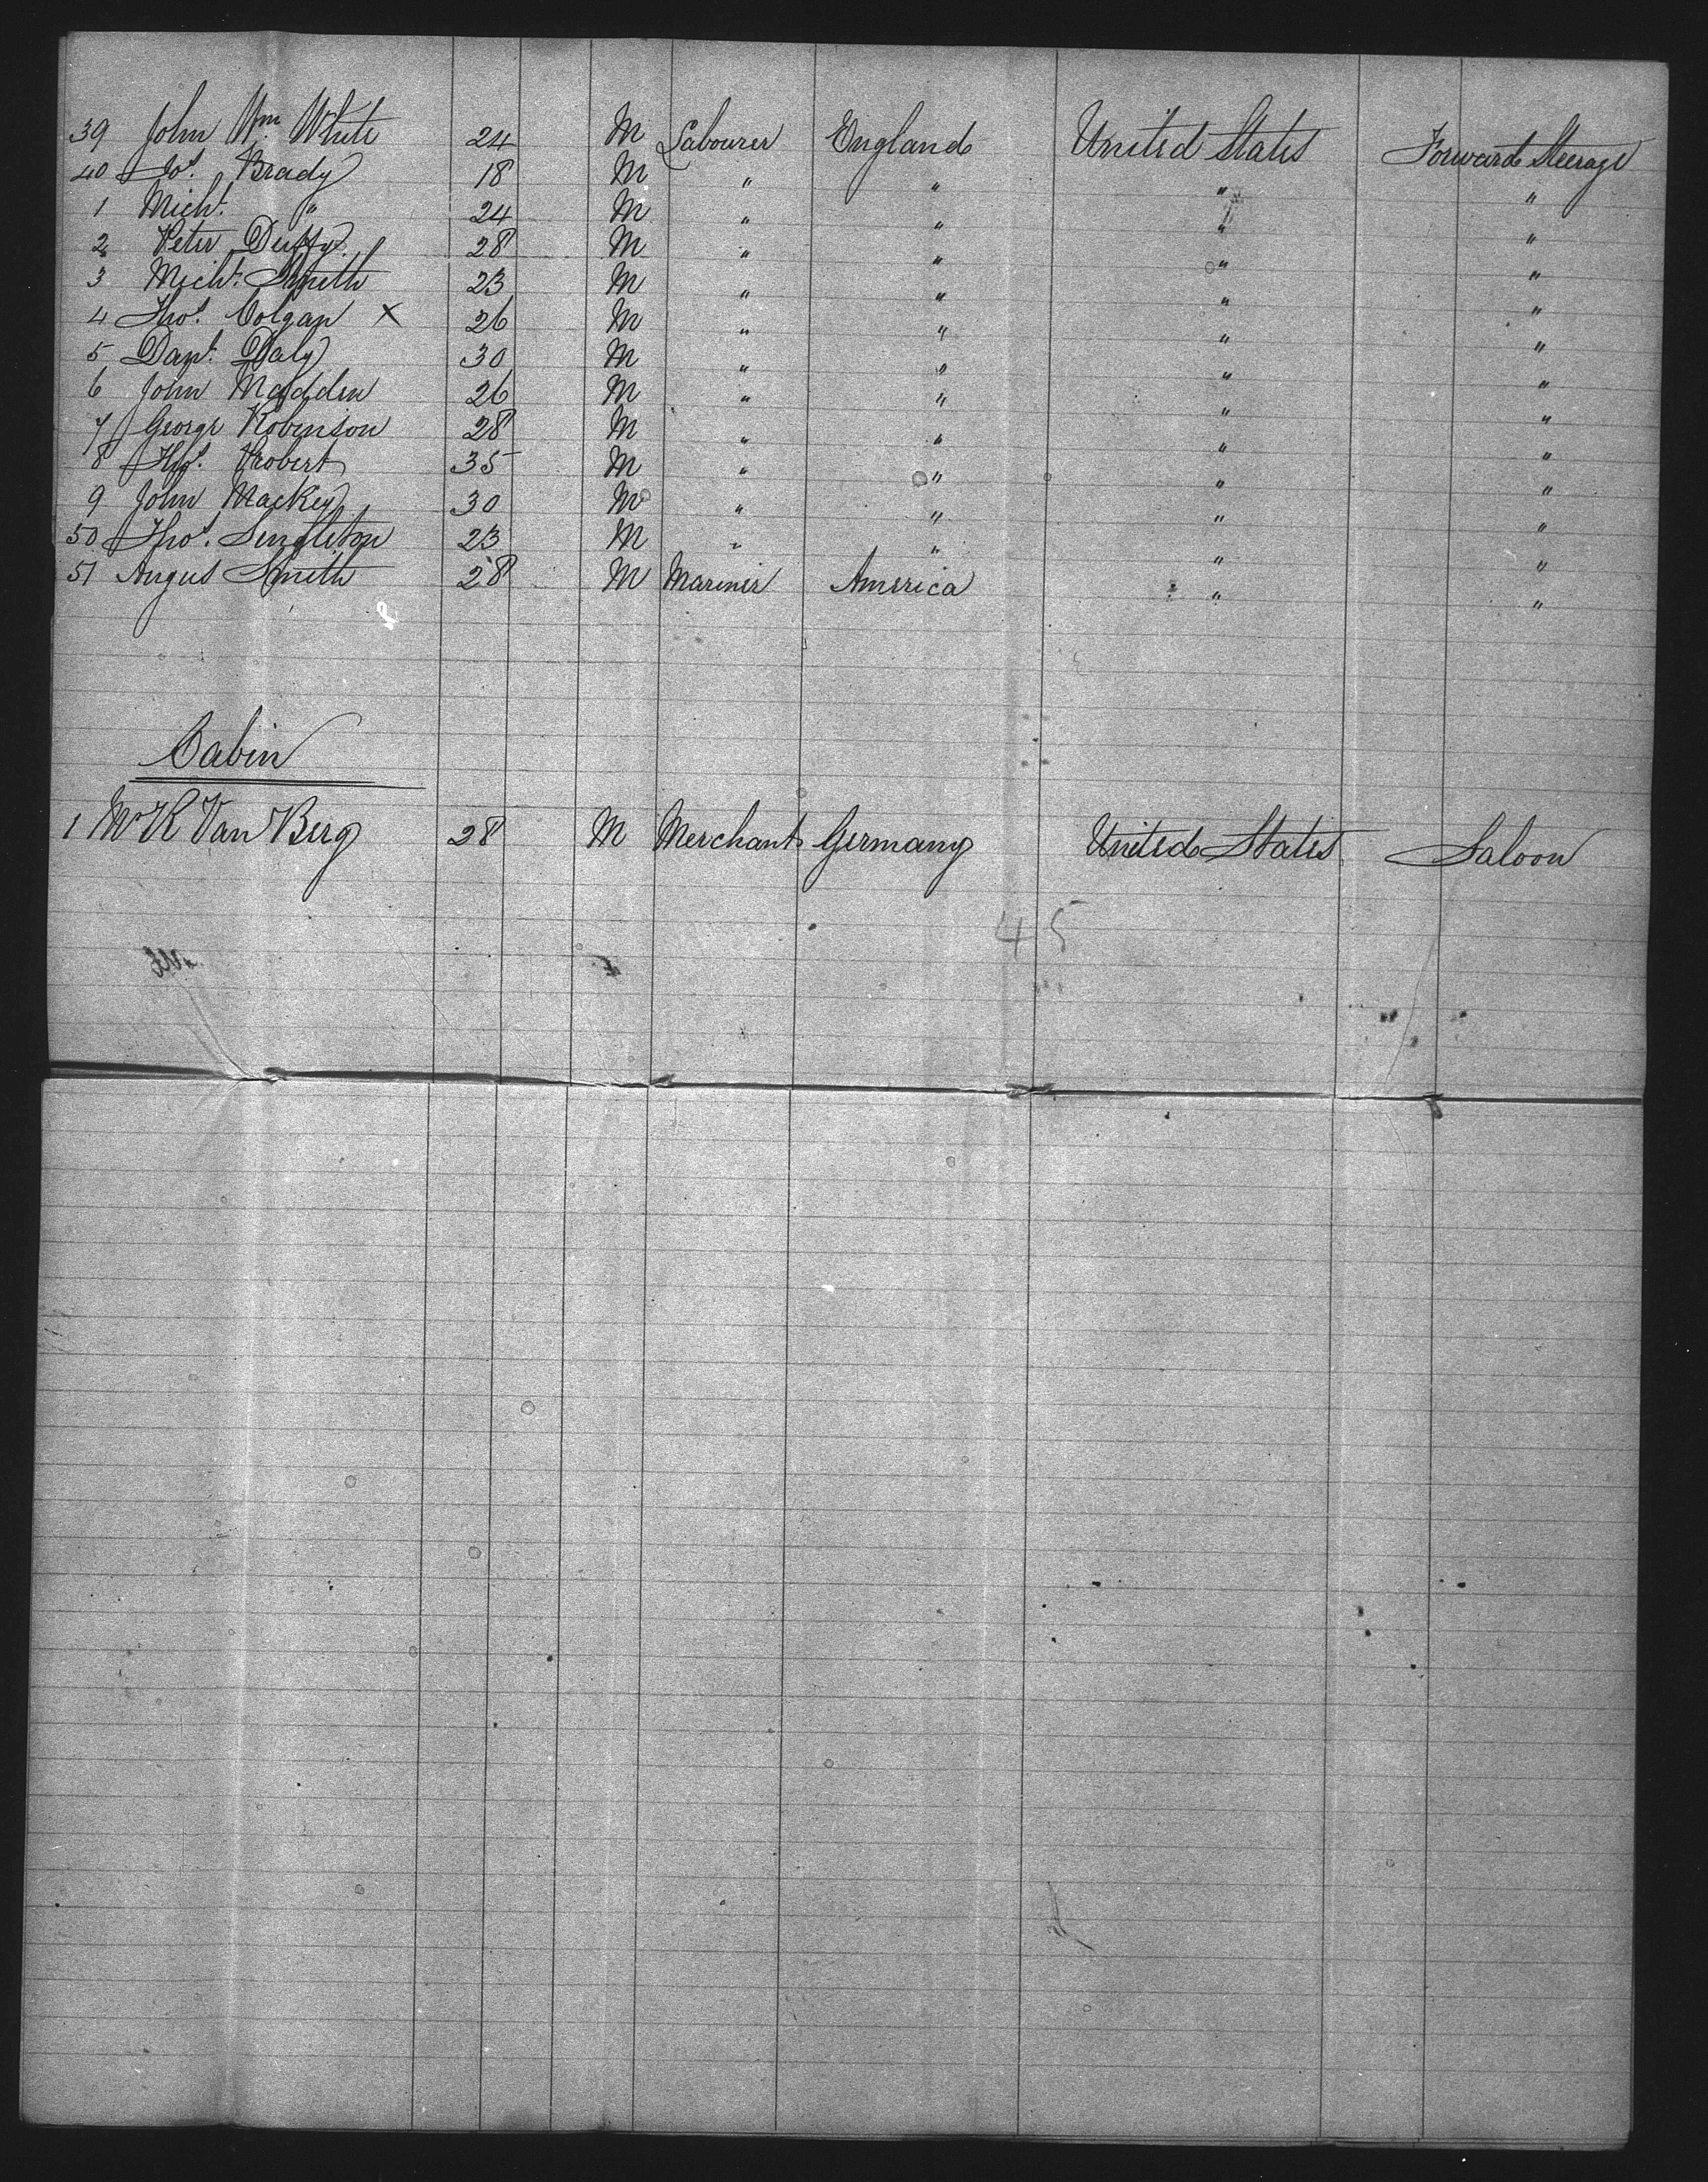 39 John Wm White 24 M Labourer England United States Forward Steerage
40 Jos. Brady 18 M " " " "
1 Michl. " 24 M " " " "
2 Peter Duffy 28 M " " " "
3 Michl. Smith 23 M " " " "
4 Thos. Colgan X 26 M " " " "
5 Danl. Daly 30 M " " " "
6 John Madden 26 M " " " "
7 George Robinson 28 M " " " "
8 Thos. Probert 35 M " " " "
9 John Mackey 30 M " " " "
50 Thos. Singleton 23 M " " " "
51 Angus Smith 28 M Mariner America " "
Cabin
1 Mr R Van Berg 28 M Merchant Germany United States Saloon
45